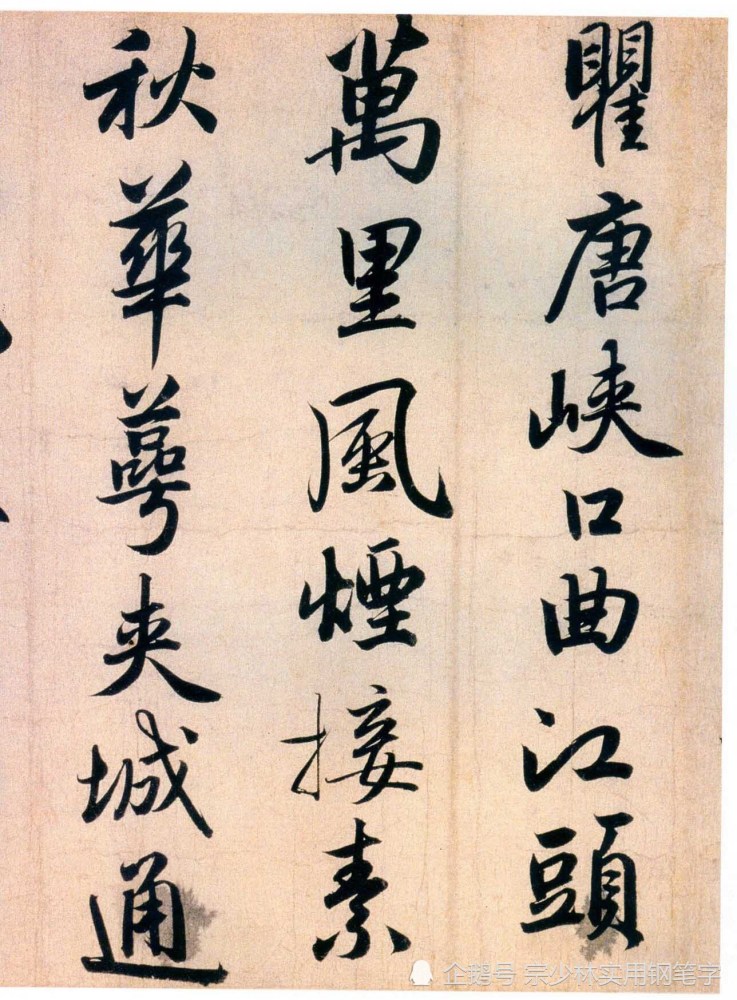 瞿唐峽口曲江頭
萬里風煙接素
秋華萼夾城通
企鹅号 宗少林实用钢笔字